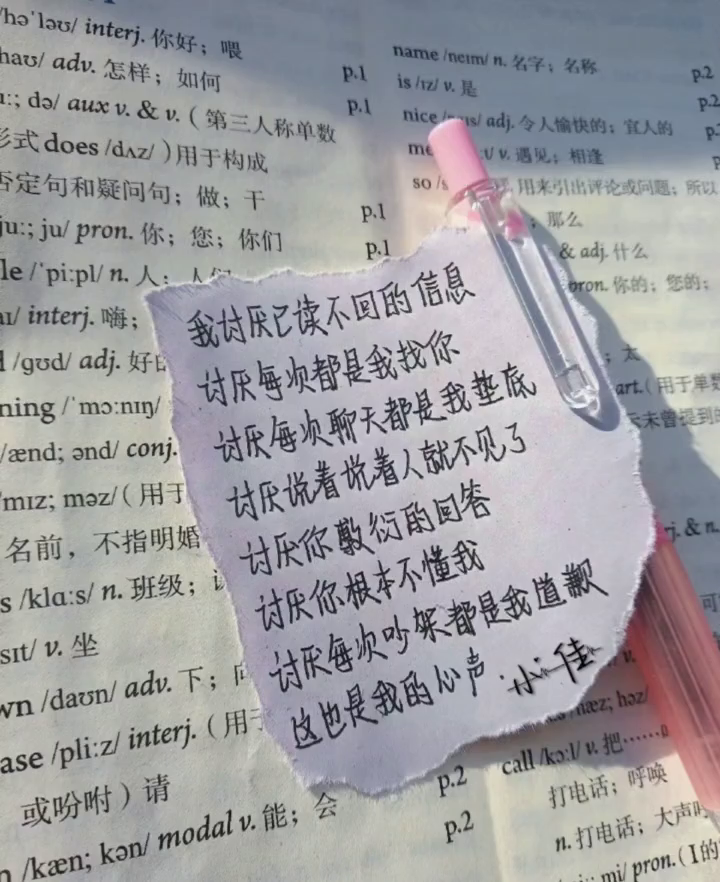 /həˈləʊ/ interj. 你好；喂
/haʊ/ adv. 怎样；如何 p.1
uː; də/ aux v. & v.（第三人称单数 p.1
形式 does /dʌz/）用于构成
否定句和疑问句；做；干
juː; ju/ pron. 你；您；你们 p.1
/ˈpiːpl/ n. 人； p.1
aɪ/ interj. 嗨；
/ɡʊd/ adj.
ning /ˈmɔːnɪŋ/
/ænd; ənd/ conj.
/mɪz; məz/（用于
名前，不指明婚
s /klɑːs/ n. 班级；
sɪt/ v. 坐
wn /daʊn/ adv. 下；
ase /pliːz/ interj.（用于
或吩咐）请 p.2
n /kæn; kən/ modal v. 能；会 p.2
name /neɪm/ n. 名字；名称 p.2
is /ɪz/ v. 是 p.2
nice adj. 令人愉快的；宜人的
v. 遇见；相逢
so 用来引出评论或问题；所以
；那么
& adj. 什么
pron. 你的；您的；
；太
art.（用于单数
未曾提到的
我讨厌已读不回的信息
讨厌每次都是我找你
讨厌每次聊天都是我垫底
讨厌说着说着人就不见了
讨厌你敷衍的回答
讨厌你根本不懂我
讨厌每次吵架都是我道歉
这也是我的心声 小佳
hæz; həz/
call /kɔːl/ v. 把……
打电话；呼唤
n. 打电话；大声
mi/ pron.（I的